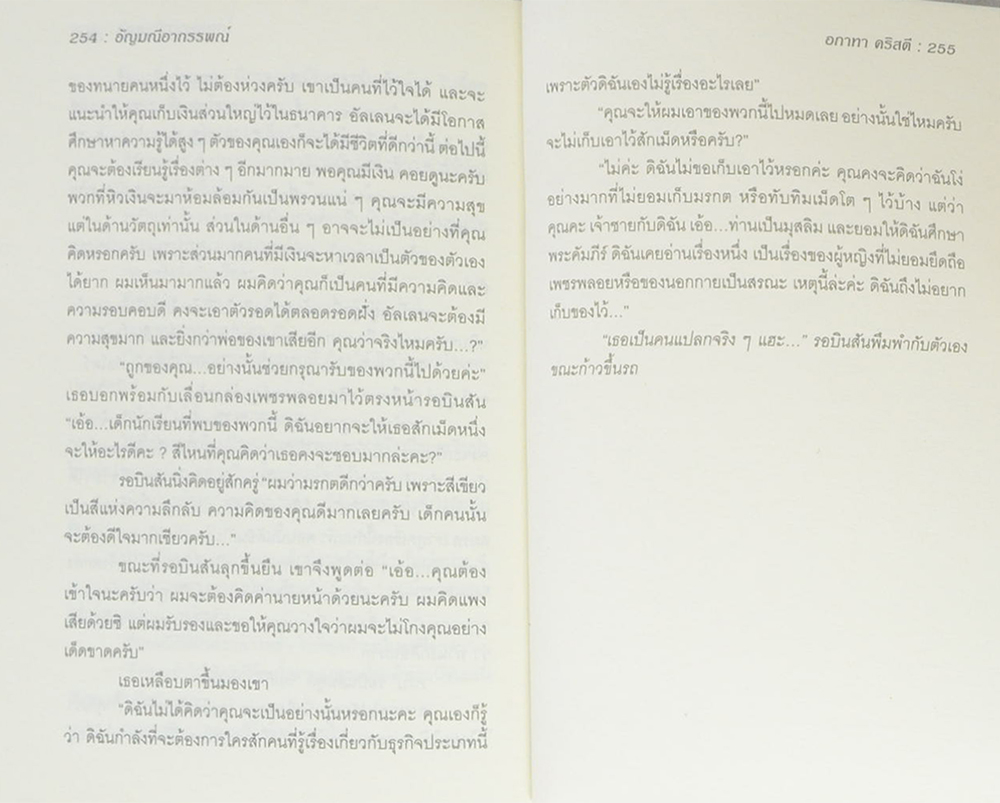 254 : อัญมณีอาถรรพณ์
ของทนายคนหนึ่งไว้ ไม่ต้องห่วงครับ เขาเป็นคนที่ไว้ใจได้ และจะ
แนะนำให้คุณเก็บเงินส่วนใหญ่ไว้ในธนาคาร อัลเลนจะได้มีโอกาส
ศึกษาหาความรู้ได้สูง ๆ ตัวของคุณเองก็จะได้มีชีวิตที่ดีกว่านี้ ต่อไปนี้
คุณจะต้องเรียนรู้เรื่องต่าง ๆ อีกมากมาย พอคุณมีเงิน คอยดูนะครับ
พวกที่หิวเงินจะมาห้อมล้อมกันเป็นพรวนแน่ ๆ คุณจะมีความสุข
แต่ในด้านวัตถุเท่านั้น ส่วนในด้านอื่น ๆ อาจจะไม่เป็นอย่างที่คุณ
คิดหรอกครับ เพราะส่วนมากคนที่มีเงินจะหาเวลาเป็นตัวของตัวเอง
ได้ยาก ผมเห็นมามากแล้ว ผมคิดว่าคุณก็เป็นคนที่มีความคิดและ
ความรอบคอบดี คงจะเอาตัวรอดได้ตลอดรอดฝั่ง อัลเลนจะต้องมี
ความสุขมาก และยิ่งกว่าพ่อของเขาเสียอีก คุณว่าจริงไหมครับ...?"
"ถูกของคุณ...อย่างนั้นช่วยกรุณารับของพวกนี้ไปด้วยค่ะ"
เธอบอกพร้อมกับเลื่อนกล่องเพชรพลอยมาไว้ตรงหน้ารอบินสัน
"เอ้อ...เด็กนักเรียนที่พบของพวกนี้ ดิฉันอยากจะให้เธอสักเม็ดหนึ่ง
จะให้อะไรดีคะ ? สีไหนที่คุณคิดว่าเธอคงจะชอบมากล่ะคะ?"
รอบินสันนิ่งคิดอยู่สักครู่ "ผมว่ามรกตดีกว่าครับ เพราะสีเขียว
เป็นสีแห่งความลึกลับ ความคิดของคุณดีมากเลยครับ เด็กคนนั้น
จะต้องดีใจมากเชียวครับ..."
ขณะที่รอบินสันลุกขึ้นยืน เขาจึงพูดต่อ "เอ้อ...คุณต้อง
เข้าใจนะครับว่า ผมจะต้องคิดค่านายหน้าด้วยนะครับ ผมคิดแพง
เสียด้วยซิ แต่ผมรับรองและขอให้คุณวางใจว่าผมจะไม่โกงคุณอย่าง
เด็ดขาดครับ"
เธอเหลือบตาขึ้นมองเขา
"ดิฉันไม่ได้คิดว่าคุณจะเป็นอย่างนั้นหรอกนะคะ คุณเองก็รู้
ว่า ดิฉันกำลังที่จะต้องการใครสักคนที่รู้เรื่องเกี่ยวกับธุรกิจประเภทนี้
อกาทา คริสตี : 255
เพราะตัวดิฉันเองไม่รู้เรื่องอะไรเลย"
"คุณจะให้ผมเอาของพวกนี้ไปหมดเลย อย่างนั้นใช่ไหมครับ
จะไม่เก็บเอาไว้สักเม็ดหรือครับ?"
"ไม่ค่ะ ดิฉันไม่ขอเก็บเอาไว้หรอกค่ะ คุณคงจะคิดว่าฉันโง่
อย่างมากที่ไม่ยอมเก็บมรกต หรือทับทิมเม็ดโต ๆ ไว้บ้าง แต่ว่า
คุณคะ เจ้าชายกับดิฉัน เอ้อ...ท่านเป็นมุสลิม และยอมให้ดิฉันศึกษา
พระคัมภีร์ ดิฉันเคยอ่านเรื่องหนึ่ง เป็นเรื่องของผู้หญิงที่ไม่ยอมยึดถือ
เพชรพลอยหรือของนอกกายเป็นสรณะ เหตุนี้ล่ะค่ะ ดิฉันถึงไม่อยาก
เก็บของไว้..."
"เธอเป็นคนแปลกจริง ๆ แฮะ..." รอบินสันพึมพำกับตัวเอง
ขณะก้าวขึ้นรถ